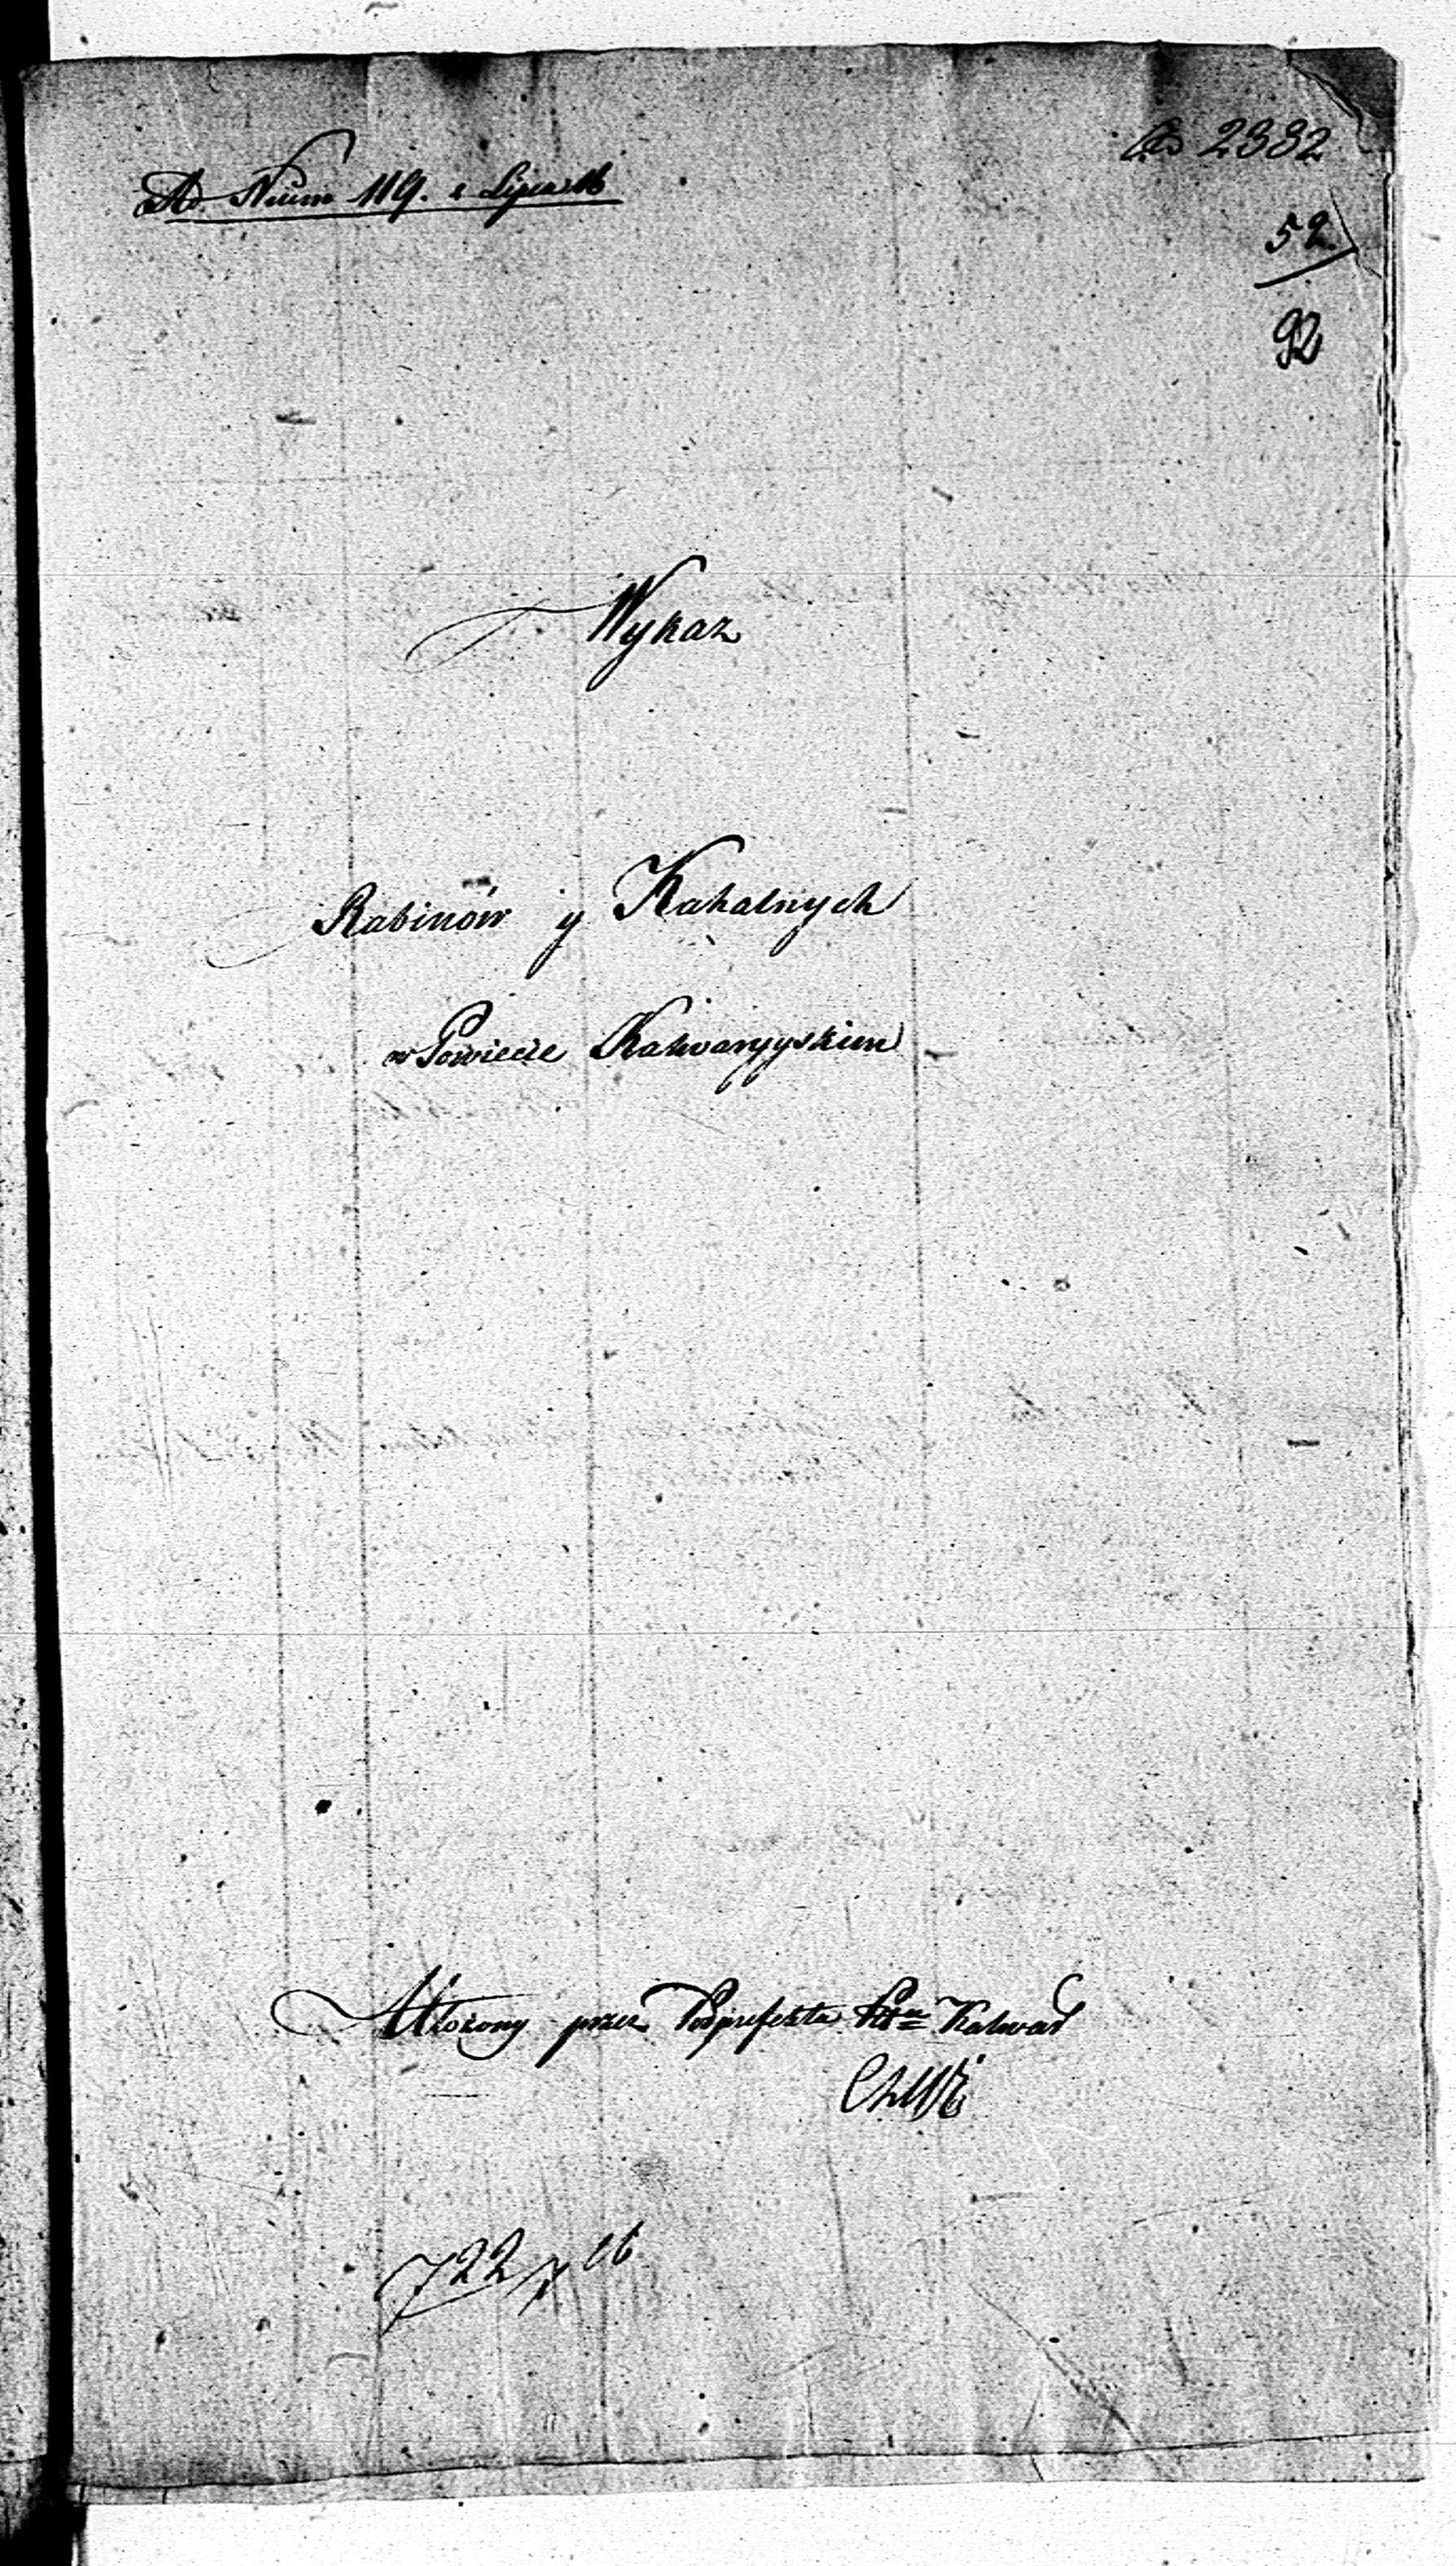 Ad Num 119. z Lipca 16
Ad 2332
52.
92
Wykaz
Rabinów y Kahalnych
w Powiecie Kalwaryyskim
Ułożony przez Podprefekta Pttu Kalwar
722/7 16